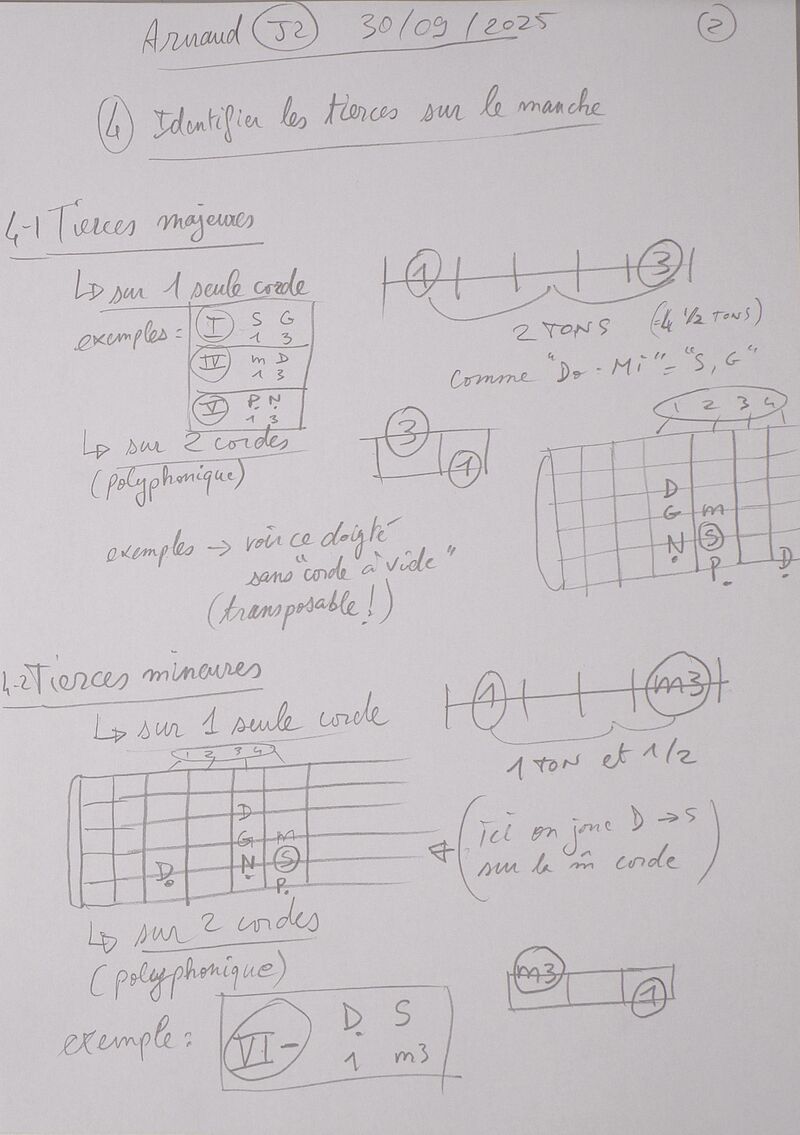 Arnaud J2 30/09/2025 2
4 Identifier les tierces sur le manche
4-1 Tierces majeures
↳ sur 1 seule corde
1 3
exemples : I S G
1 3
IV m D
1 3
V P. N.
1 3
2 TONS (= 4 1/2 TONS)
comme "Do - Mi" = "S, G"
↳ sur 2 cordes
(polyphonique)
3
1
1 2 3 4
D
G m
N. S
P. D.
exemples → voir ce doigté
sans "corde à vide"
(transposable !)
4-2 Tierces mineures
↳ sur 1 seule corde
1 m3
1 TON et 1/2
1 2 3 4
D
G m
D. N. S
P.
(ici on joue D → S
sur la m̂ corde)
↳ sur 2 cordes
(polyphonique)
m3
1
exemple : VI- D. S
1 m3